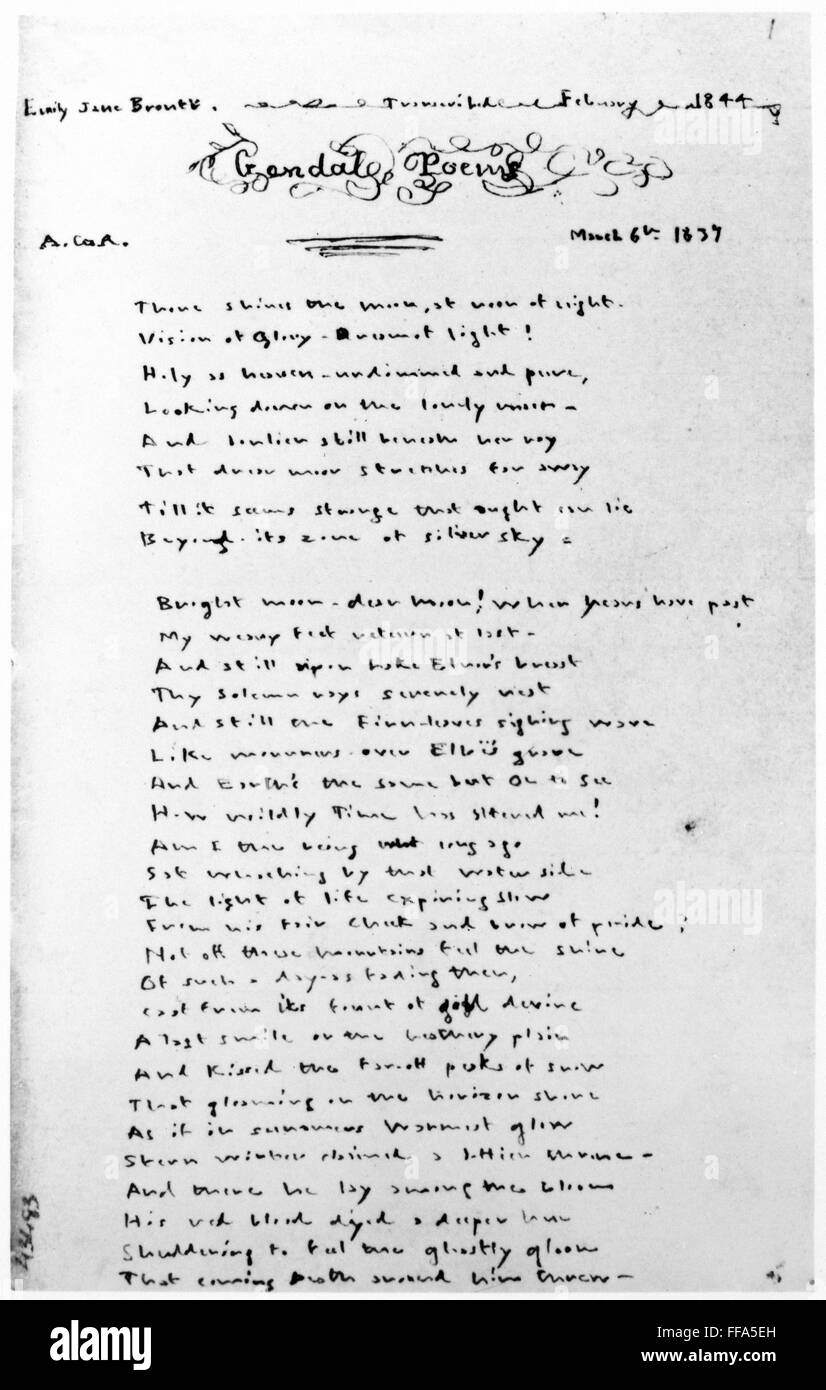 1
Emily Jane Brontë. Transcribed February 1844
Gondal Poems
A.G.A. March 6th 1837
There shines the moon, at noon of night.
Vision of Glory - Dream of light!
Holy as heaven - undimmed and pure,
Looking down on the lonely moor -
And lonlier still beneath her ray
That drear moor stretches far away
Till it seems strange that aught can lie
Beyond its zone of silver sky -
Bright moon - dear moon! when years have past
My weary feet return at last -
And still upon Lake Elnor's breast
Thy solemn rays serenely rest
And still the Fern-leaves sighing wave
Like mourners over Elbë's grave
And Earth's the same but Oh to see
How wildly Time has altered me!
Am I the being who long ago
Sat watching by that water side
The light of life expiring slow
From his fair cheek and brow of pride;
Not oft these mountains feel the shine
Of such a day - as fading then,
Cast from its fount of gold devine
A last smile on the heathery plain
And kissed the far-off peaks of snow
That gleaming on the horizon shone
As if in summers warmest glow
Stern winter claimed a loftier throne -
And there he lay among the bloom
His red blood dyed a deeper hue
Shuddering to feel the ghostly gloom
That coming Death around him threw -
43483
alamy
alamy
alamy
alamy
alamy
Image ID: FFA5EH
www.alamy.com